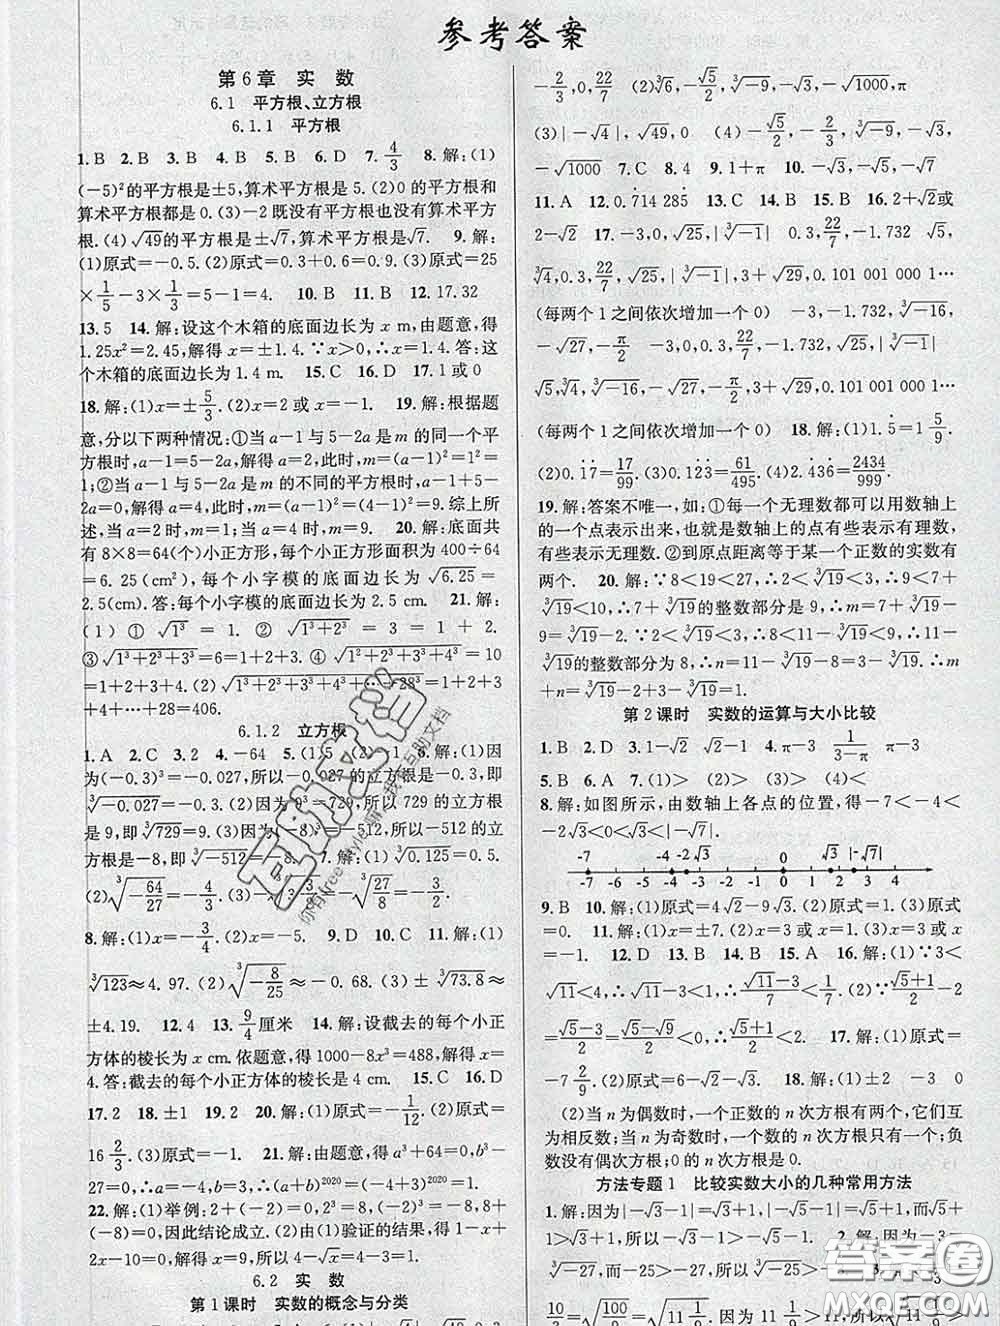 参考答案
第6章 实数
6.1 平方根、立方根
6.1.1 平方根
1.B 2.B 3.B 4.B 5.B 6.D 7.4/3 8.解:(1)
(-5)²的平方根是±5,算术平方根是5.(2)0的平方根和
算术平方根都是0.(3)-2既没有平方根也没有算术平方
根.(4)√49的平方根是±√7,算术平方根是√7. 9.解:
(1)原式=-0.5.(2)原式=0.3+0.6=0.9.(3)原式=25
×1/5-3×1/3=5-1=4. 10.B 11.B 12.17.32
13.5 14.解:设这个木箱的底面边长为x m,由题意,得
1.25x²=2.45,解得x=±1.4.∵x>0,∴x=1.4.答:这
个木箱的底面边长为1.4 m. 15.C 16.D 17.1或0
18.解:(1)x=±5/3.(2)x=2或x=-1. 19.解:根据题
意,分以下两种情况:①当a-1与5-2a是m的同一个平
方根时,a-1=5-2a,解得a=2,此时,m=(2-1)²=1²=
1;②当a-1与5-2a是m的不同的平方根时,a-1+5-
2a=0,解得a=4,此时,m=(4-1)²=3²=9.综上所
述,当a=2时,m=1;当a=4时,m=9. 20.解:底面共
有8×8=64(个)小正方形,每个小正方形面积400÷64=
6.25(cm²),每个小字模的底面边长为√6.25=
2.5(cm).答:每个小字模的底面边长为2.5 cm. 21.解:
(1)①√1³=1.②√1³+2³=3=1+2.
③√1³+2³+3³=6=1+2+3.④√1³+2³+3³+4³=10
=1+2+3+4.(2)√1³+2³+3³+4³+…+28³=1+2+3
+4+…+28=406.
6.1.2 立方根
1.A 2.C 3.2 4.-64 6.解:(1)因
为(-0.3)³=-0.027,所以-0.027的立方根是-0.3,即
³√-0.027=-0.3.(2)因为9³=729,所以729的立方根
是9,即³√729=9.(3)因为(-8)³=-512,所以-512的立
方根是-8,即³√-512=-8. 7.解:(1)³√0.125=0.5.
8.解:(1)x=-3/4.(2)x=-5. 9.D 10.C 11.解:(1)
³√123≈4.97.(2)³√-8/25≈-0.684.(3)±³√73.8≈
±4.19. 12.4 13.9/4厘米 14.解:设截去的每个小正
方体的棱长为x cm.依题意,得1000-8x³=488,解得x=
4.答:截去的每个小正方体的棱长是4 cm. 15.C 16.D
17.2 18.±1 19.2 20.解:(1)原式=-1/12.(2)原式=
16 2/3.(3)原式=-1. 21.解:由题意,得a³+64=0,b³-
22.解:(1)举例:2+(-2)=0,2³=8,(-2)³=-8,8+
(-8)=0,因此结论成立.(2)由(1)验证的结果,得1-x+
2x-10=0,解得x=9,所以4-√x=4-3=1.
6.2 实数
第1课时 实数的概念与分类
-2/3,0,22/7 (2)³√6,-√5/2,³√-9,-√3,-√1000,π
(3)|-√4|,√49,0 (4)-√5/2,-2/3,³√-9,-√3,
-√1000 7.C 8.4 9.1+π 10.-√3,-√5,-√7
11.A 12.0.714 285 13.C 14.B 15.B 16.2+√2或
2-√2 17.-3,0,√25,|³√-1| 0.3,22/7,-1.732 √5,
³√4,0.3,22/7,√25,|³√-1|,+√29,0.101 001 000 1…
(每两个1之间依次增加一个0) -3,-1.732,³√-16,
-√27,-π/2 -3,0,0.3,22/7,√25,-1.732,|³√-1|
√5,³√4,³√-16,-√27,-π/2,+√29,0.101 001 000 1…
(每两个1之间依次增加一个0) 18.解:(1)1.5=1 5/9.
(2)0.17=17/99.(3)0.123=61/495.(4)2.436=2434/999.
19.解:答案不唯一,如:①每一个无理数都可以用数轴上
的一个点表示出来,也就是数轴上的点有些表示有理数,
有些表示无理数.②到原点距离等于某一个正数的实数有
两个. 20.解:∵8<19<27,∴2<³√19<3,∴9<7+
³√19<10,∴7+³√19的整数部分是9,∴m=7+³√19-
9=³√19-2.∵2<³√19<3,∴8<11-³√19<9,∴11-
³√19的整数部分为8,∴n=11-³√19-8=3-³√19.∴m
+n=³√19-2+3-³√19=1.
第2课时 实数的运算与大小比较
1.B 2.D 3.1-√2 √2-1 4.π-3 1/(3-π) π-3
5.B 6.A 7.(1)> (2)> (3)> (4)<
8.解:如图所示,由数轴上各点的位置,得-7<-4<-
2√3<0<√3<|-√7|.
-4 -2√3 √3 |-√7|
-7 -6 -5 -4 -3 -2 -1 0 1 2 3 4
9.B 10.解:(1)原式=4√2-9√3.(2)原式=1.(3)原式
=0. 11.解:(1)x=±√7.(2)x=3或x=1.(3)x=3或x
=-1. 12.D 13.B 14.B 15.A 16.解:(1)∵3<
√11<4,∴√11-3<1.∴(√11-3)/7<1/7.(2)∵(√5+1)/2-2
=(√5-3)/2,√5-3<0,∴(√5-3)/2<0,∴(√5+1)/2<2. 17.解:(1)原式=
-7 2/9.(2)原式=6-√3. 18.解:(1)±2 -3 0
(2)当n为偶数时,一个正数的n次方根有两个,它们互
为相反数;当n为奇数时,一个数的n次方根只有一个;负
数没有偶次方根;0的n次方根是0.
方法专题1 比较实数大小的几种常用方法
1.解:因为|-√3-1|=√3+1,|-√5-1|=√5+1,而√5+
1>√3+1,所以-√3-1>-√5-1. 2.解:因为-3=
10/3=√100/9=√11 1/9,因为11 1/9>11,所以√11 1/9>√11,即
答案圈
MXQE.COM